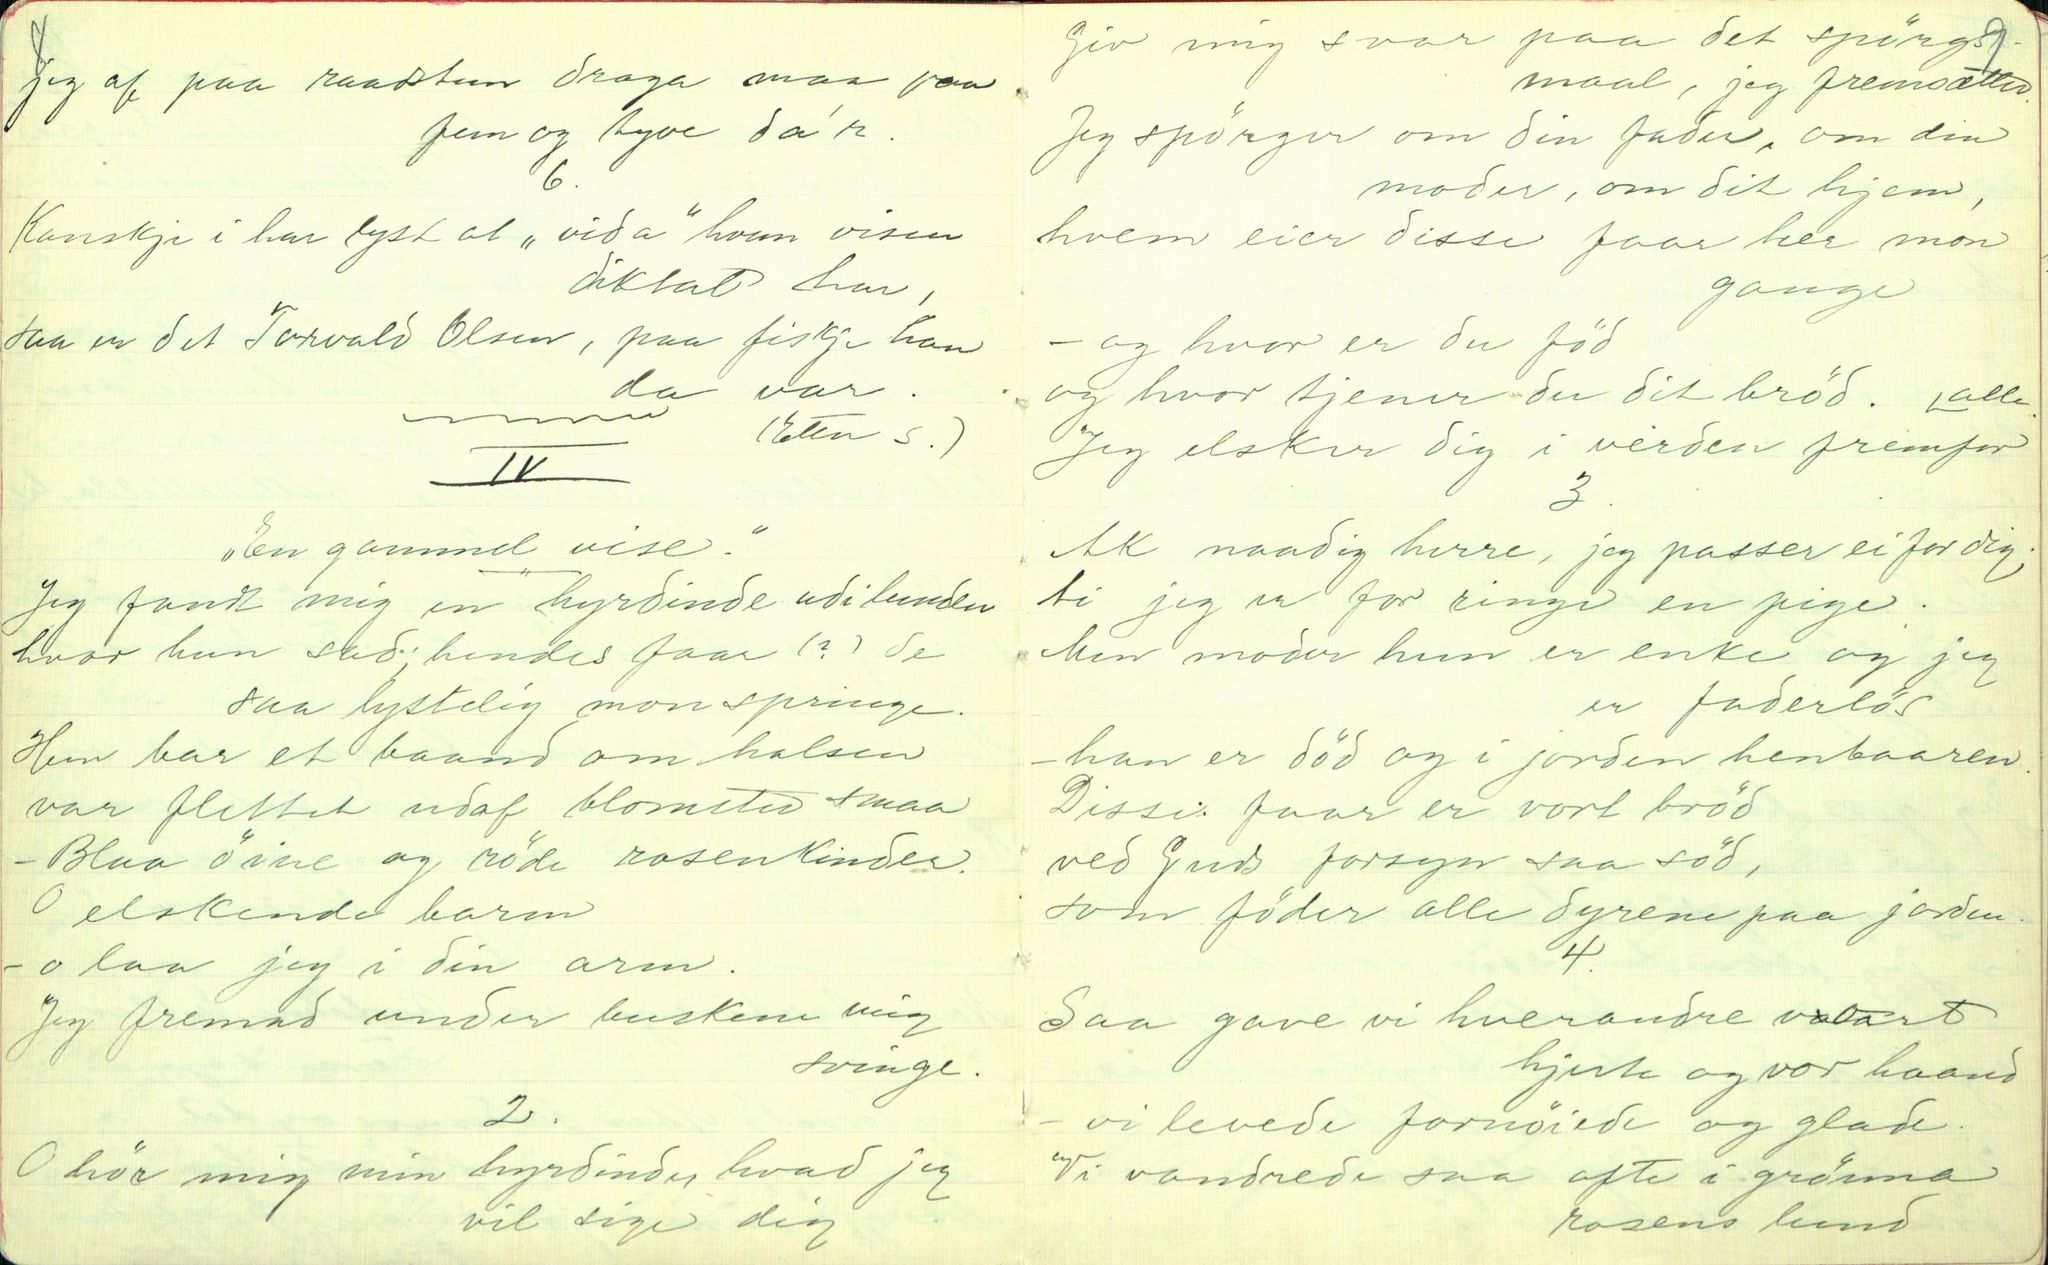 8
jeg af paa raadstun draga maa paa
fem og tyve da'r.
6.
Kanskje i har lyst at „vida" hvem visen
diktat har,
saa er det Torvald Olsen, paa fiskje han
da var.
(Etter S.)
IV
„En gammel vise."
Jeg fandt mig en hyrdinde udi lunden
hvor hun sad; hendes faar (?) de
saa lystelig mon springe.
Hun bar et baand om halsen
var flettet udaf blomster smaa
- Blaa öine og röde rosenkinder.
O elskende barm
- o laa jeg i din arm.
Jeg fremad under buskene mig
svinge.
2.
O hör mig min hyrdinde, hvad jeg
vil sige dig
9
Giv mig svar paa det spörgs-
maal, jeg fremsætter.
Jeg spörger om din fader, om din
moder, om dit hjem,
hvem eier disse faar her mon
gange
- og hvor er du föd
og hvor tjener du dit bröd.
Jeg elsker dig i verden fremfor alle.
3.
Ak naadig herre, jeg passer ei for dig;
ti jeg er for ringe en pige.
Min moder hun er enke og jeg
er faderlös
- han er död og i jorden henbaaren.
Disse faar er vort bröd
ved Guds forsyn saa söd,
som föder alle dyrene paa jorden.
4.
Saa gave vi hverandre vort
hjerte og vor haand
- vi levede fornöiede og glade.
Vi vandrede saa ofte i grönna
rosens lund